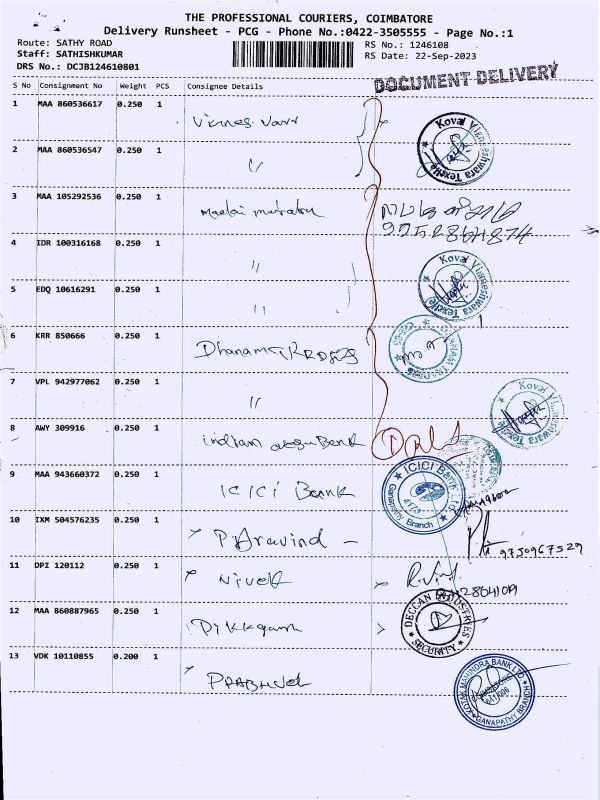 THE PROFESSIONAL COURIERS, COIMBATORE
Delivery Runsheet - PCG - Phone No.:0422-3505555 - Page No.:1
Route: SATHY ROAD
Staff: SATHISHKUMAR
DRS No.: DCJB124610801
RS No.: 1246108
RS Date: 22-Sep-2023
DOCUMENT DELIVERY
S No Consignment No Weight PCS Consignee Details
1 MAA 860536617 0.250 1
Koval Vigneshwara Textile
2 MAA 860536547 0.250 1 "
3 MAA 105292536 0.250 1
9952864874
4 IDR 100316168 0.250 1 "
Koval Vigneshwara Textile
5 EDQ 10616291 0.250 1 "
6 KRR 850666 0.250 1
7 VPL 942977062 0.250 1 "
Koval Vigneshwara Textile
8 AWY 309916 0.250 1 indian Bank
9 MAA 943660372 0.250 1 ICICI Bank
ICICI Bank Ltd.
4173
Ganapathy Branch
10 IXM 504576235 0.250 1 P. Aravind -
9750967529
11 DPI 120112 0.250 1
12 MAA 860887965 0.250 1
DECCAN INDUSTRIES
SECURITY
13 VDK 10110855 0.200 1
KOTAK MAHINDRA BANK LTD
GANAPATHY BRANCH